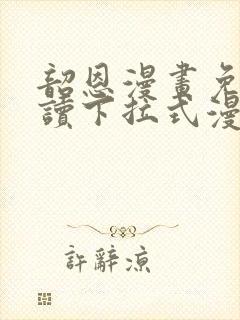 韶恩漫畫免
讀下拉式漫
許辭涼